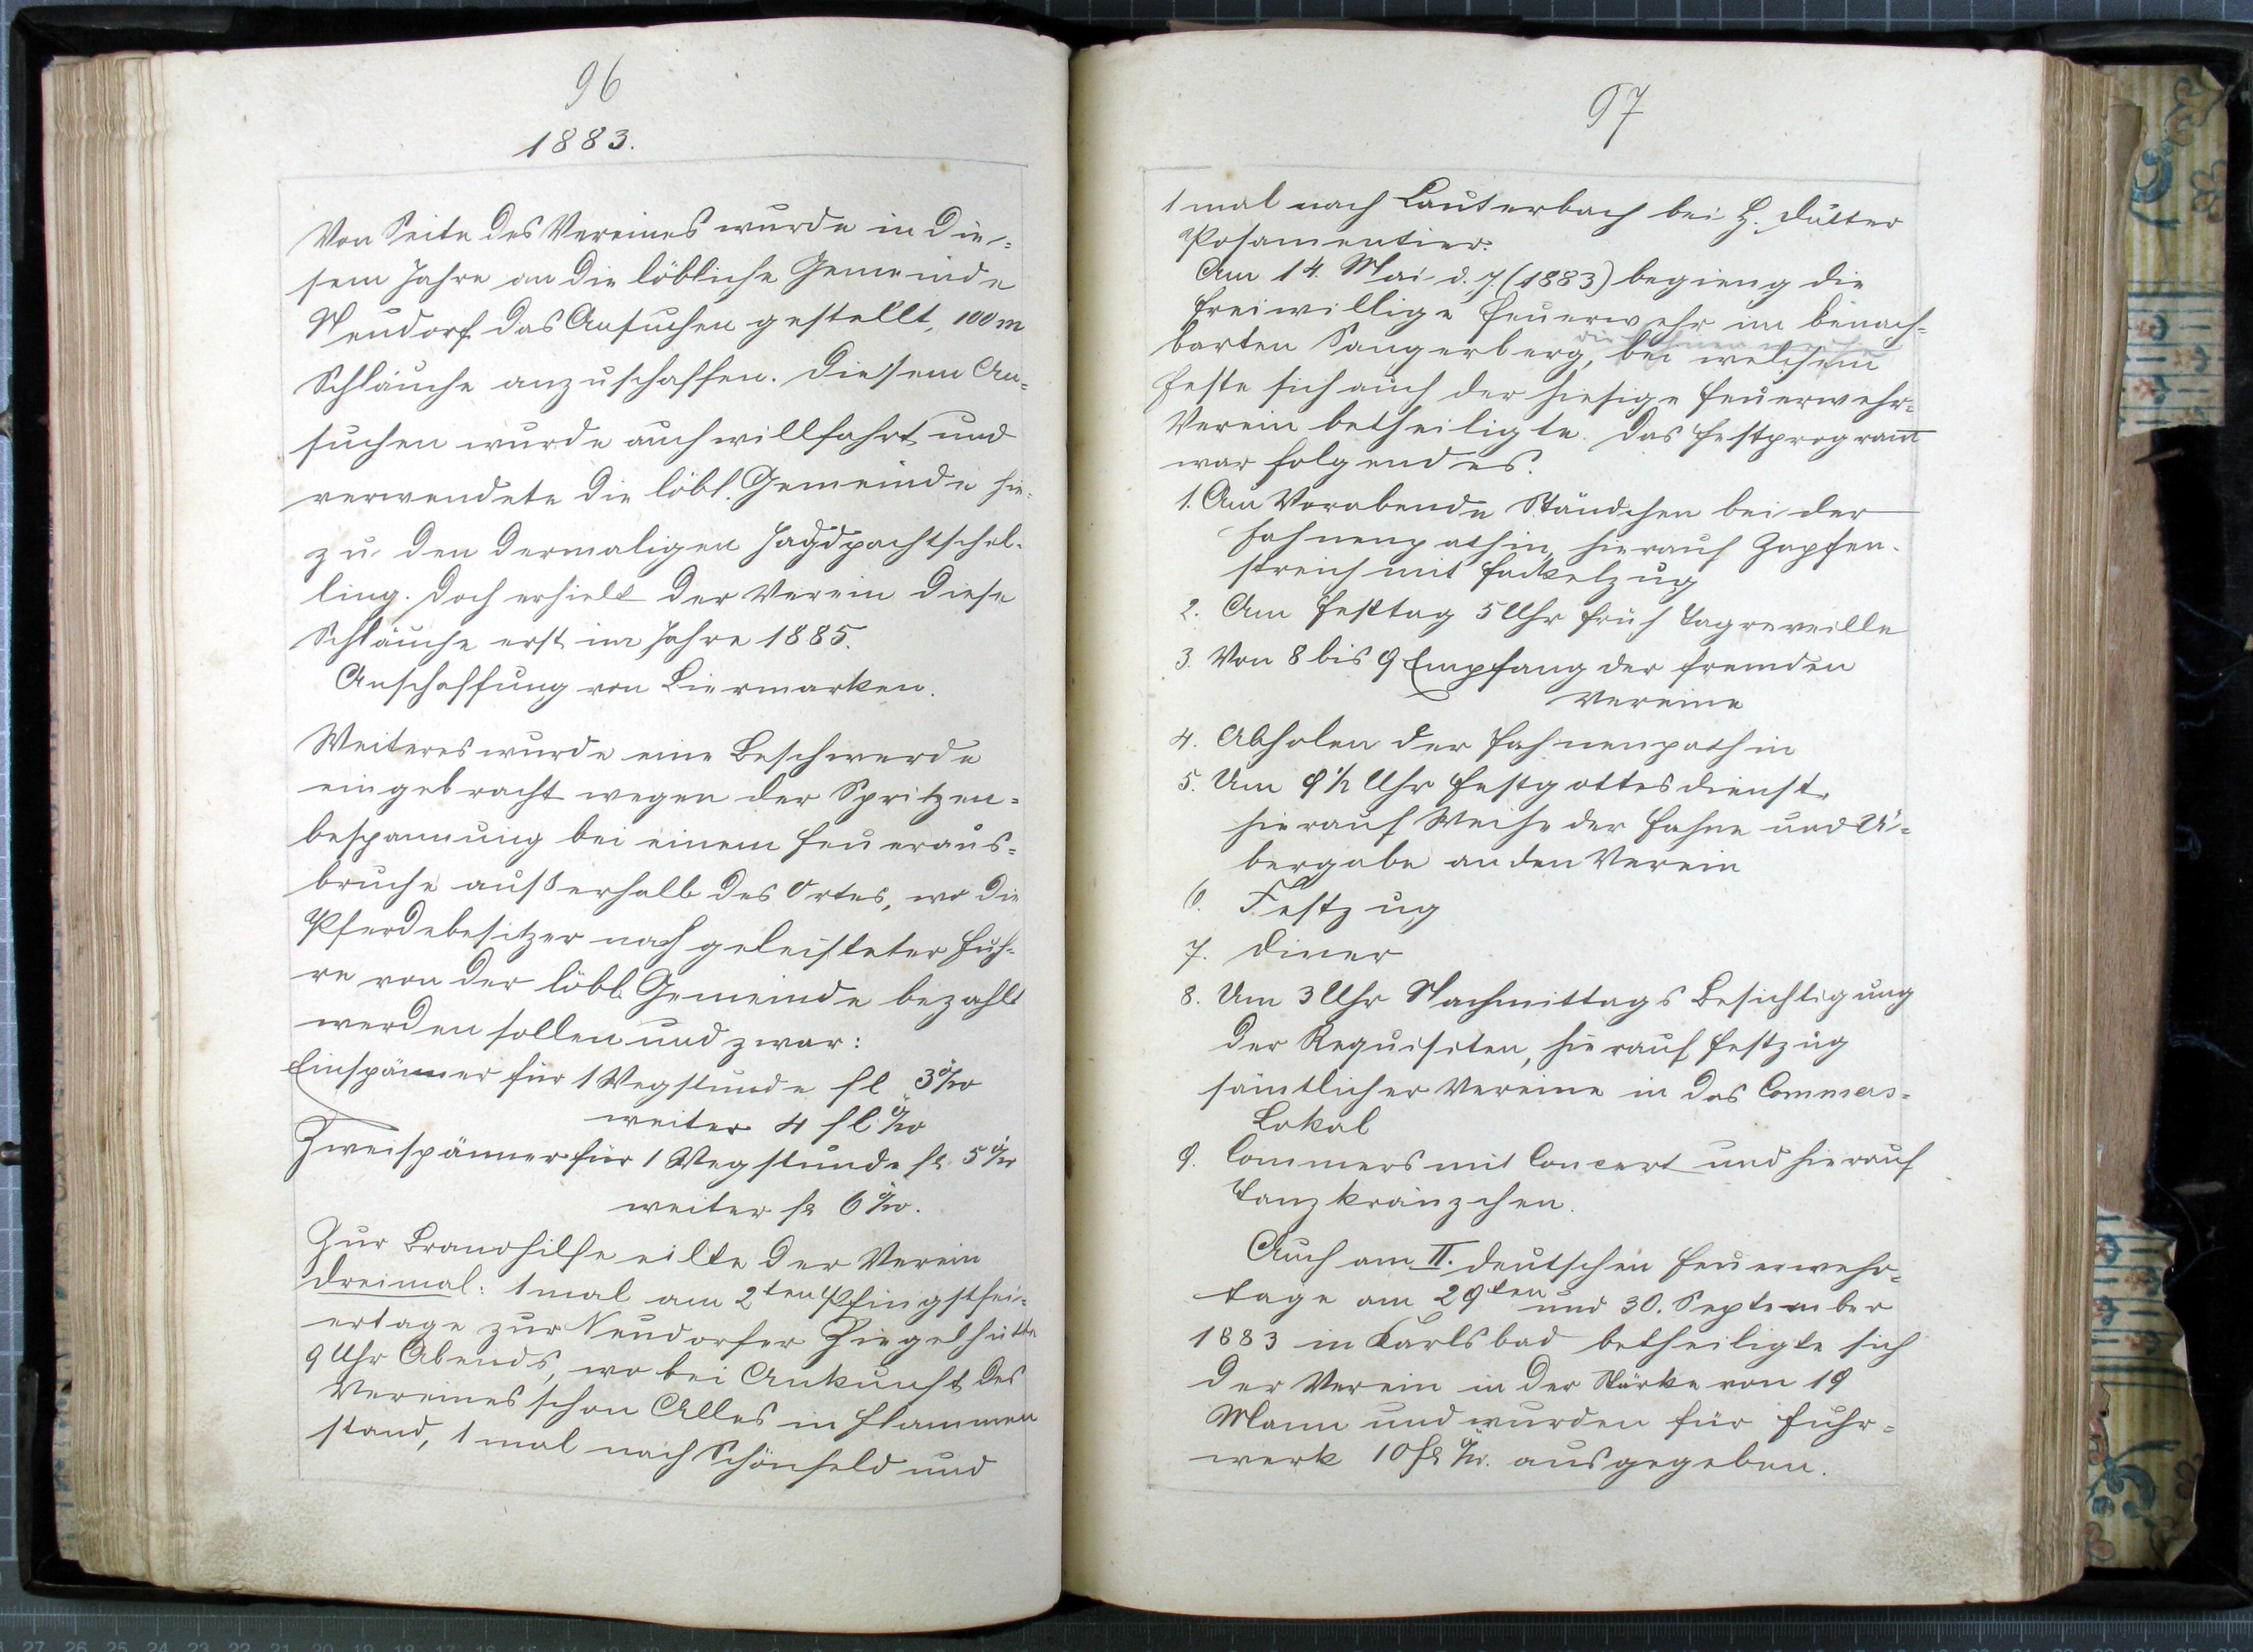 96
1883.
Von Seite des Vereines wurde in die-
sem Jahre an die löbliche Gemeinde
Neudorf das Ansuchen gestellt, 100 m
Schläuche anzuschaffen. Diesem An-
suchen wurde auch willfahrt und
verwendete die löbl. Gemeinde hie-
zu den dermaligen Jagdpachtschil-
ling. Doch erhielt der Verein diese
Schläuche erst im Jahre 1885.
Anschaffung von Biermarken.
Weiteres wurde eine Beschwerde
eingebracht wegen der Spritzen-
bespannung bei einem Feueraus-
bruche außerhalb des Ortes, wo die
Pferdebesitzer nach geleisteter Fuh-
re von der löbl. Gemeinde bezahlt
werden sollen und zwar:
Einspänner für 1 Wegstunde fl 3
weiter 4 fl
Zweispänner für 1 Wegstunde fl 5
weiter fl 6
Zur Brandhilfe eilte der Verein
dreimal: 1 mal am 2ten Pfingstfei-
ertage zur Neudorfer Ziegelhütte
9 Uhr Abends, wo bei Ankunft des
Vereines schon Alles in Flammen
stand, 1 mal nach Schönfeld und
97
1 mal nach Lauterbach bei H.
Posamentier.
Am 14. Mai d. J. (1883) begieng die
freiwillige Feuerwehr im benach-
barten Sangerberg, bei welchem
Feste sich auch der hiesige Feuerwehr-
Verein betheiligte. Das Festprogram̅
war folgendes.
1. Am Vorabende Ständchen bei der
Fahnenpathin, hierauf Zapfen-
streich mit Fackelzug
2. Am Festtag 5 Uhr früh Tagreveille
3. Von 8 bis 9 Empfang der fremden
Vereine
4. Abholen der Fahnenpathin
5. Um 9 1/2 Uhr Festgottesdienst,
hierauf Weihe der Fahne und Ü-
bergabe an den Verein
6. Festzug
7. Diner
8. Um 3 Uhr Nachmittags Besichtigung
der Requisiten, hierauf Festzug
sämtlicher Vereine in das Commers-
Lokal
9. Commers mit Concert und hierauf
Tanzkränzchen.
Auch am II. deutschen Feuerwehr-
tage am 29ten und 30. September
1883 in Karlsbad betheiligte sich
der Verein in der Stärke von 19
Mann und wurden für Fuhr-
werk 10 fl ausgegeben.